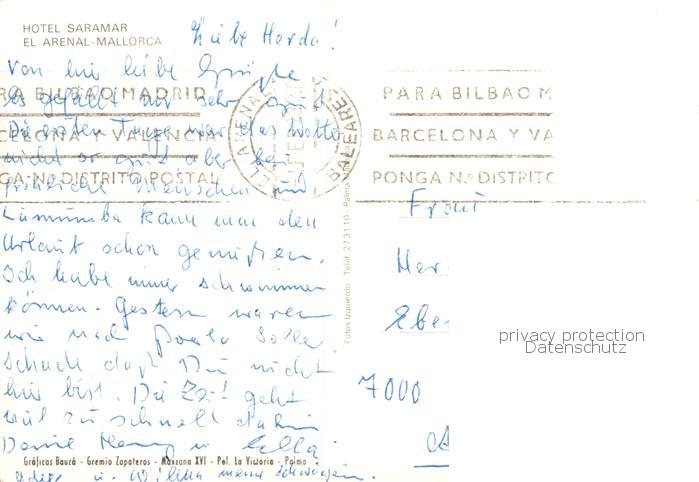 HOTEL SARAMAR
EL ARENAL-MALLORCA
Liebe Herda!
Von hier liebe Grüße
es gefällt mir sehr gut
Die ersten Tage war das Wetter
nicht so gut aber bei
fröhliche Menschen und
Lumumba kann man den
Urlaub schon genießen.
Ich habe immer schwimmen
können. Gestern waren
wir nach Soller
schade daß Du nicht
hier bist. Die Zeit geht
viel zu schnell dahin
Deine
u. meine
EL ARENAL
BALEARES
PARA BILBAO MADRID
BARCELONA Y VALENCIA
PONGA N.º DISTRITO POSTAL
PARA BILBAO M
BARCELONA Y VA
PONGA N.º DISTRITO
Fotos Izquierdo - Teléf. 27 31 10 - Palma
Frau
Her
Ebe
7000
privacy protection
Datenschutz
Gráficas Bauzá - Gremio Zapateros - Manzana XVI - Pol. La Victoria - Palma